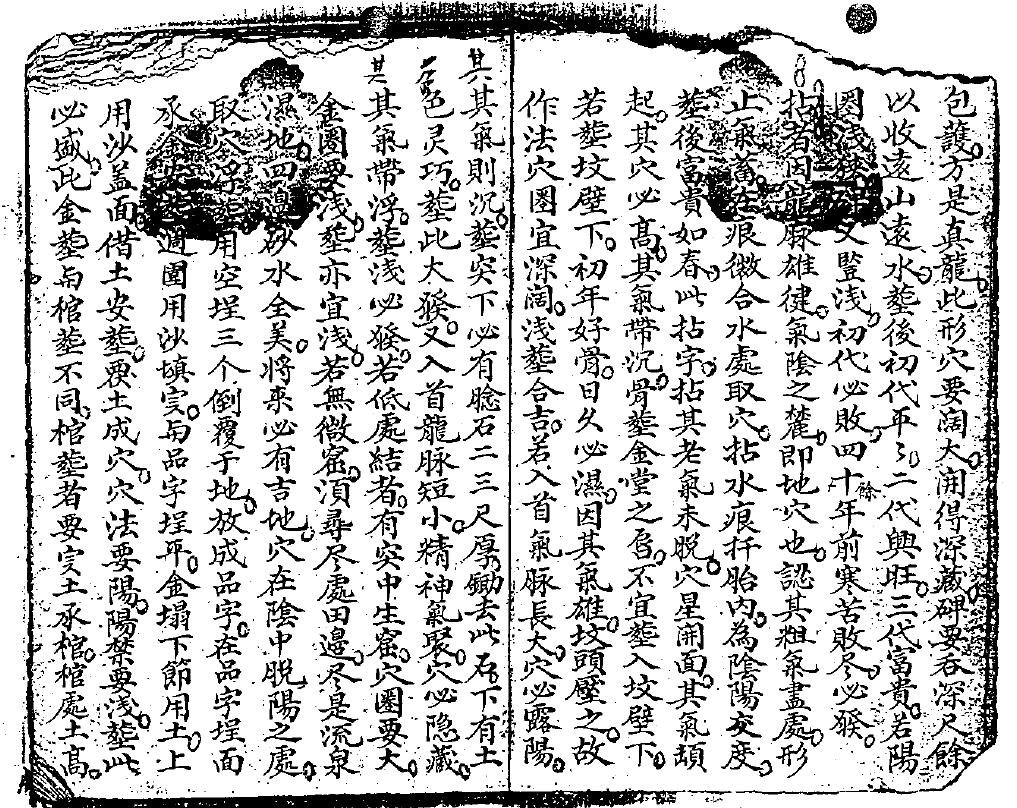 包護方是真龍此形穴要闊大開得深藏碑要吞深尺餘
以收遠山遠水塟後初代平〻二代興旺三代富貴若陽
圈淺又豎淺初代必敗四十餘年前寒苦敗尽必發
拈者因龍脉雄健氣陰之麓即地穴也認其粗氣盡處形
止氣蓄在痕微合水處取穴拈水痕扦胎內為陰陽交度
塟後富貴如春此拈字拈其老氣未脫穴星開面其氣頡
起其穴必高其氣帶沉骨塟金堂之后不宜塟入坟壁下
若塟坟壁下初年好骨日久必濕因其氣雄坟頭壓之故
作法穴圈宜深闊淺塟合吉若入首氣脉長大穴必露陽
其其氣則沉塟突下必有腍石二三尺厚鋤去此石下有土
五色灵巧塟此大發又入首龍脉短小精神氣聚穴必隐藏
其其氣帶浮塟淺必發若低處結者有突中生窩穴圈要大
金圈要淺塟亦宜淺若無微窩湏尋尽處田邊尽是流泉
濕地四邊砂水全美將來必有吉地穴在陰中脫陽之處
取穴浮用空埕三个倒覆于地放成品字在品字埕面
承金週圍用沙填寔与品字埕平金塌下節用土上
用沙盖面借土安塟要土成穴穴法要陽陽禁要淺塟此
必盛此金塟与棺塟不同棺塟者要寔土承棺棺處土高